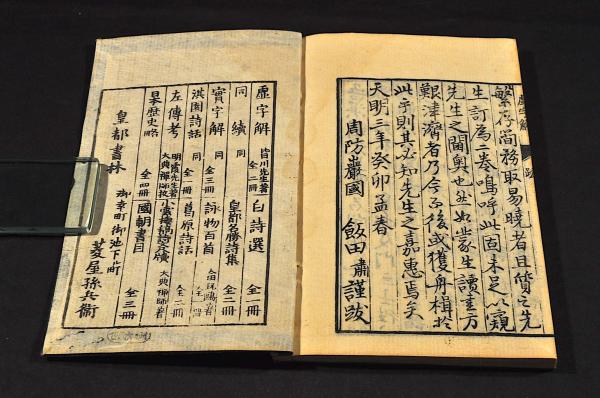 繁存簡務取易曉者且質之先
生訂為二卷嗚呼此固未足以窺
先生之閫奥也然如蒙生讀書方
艱津濟者乃今而後或獲舟楫於
此乎則其必知先生之嘉惠焉矣
天明三年癸卯孟春
周防巖國 飯田肅謹跋
虛字解 皆川先生著 全二冊 白詩選 全一冊
同續 同 皇都名勝詩集 全二冊
實字解 同 全三冊 詠物百首
淇園詩話 同 全一冊 葛原詩話
左傳考 明霞先生著 大典禪師校 大典禪師著
日本歴史略 全四冊 國朝書目 全三冊
皇都書林 御幸町御池下ル町 菱屋孫兵衛